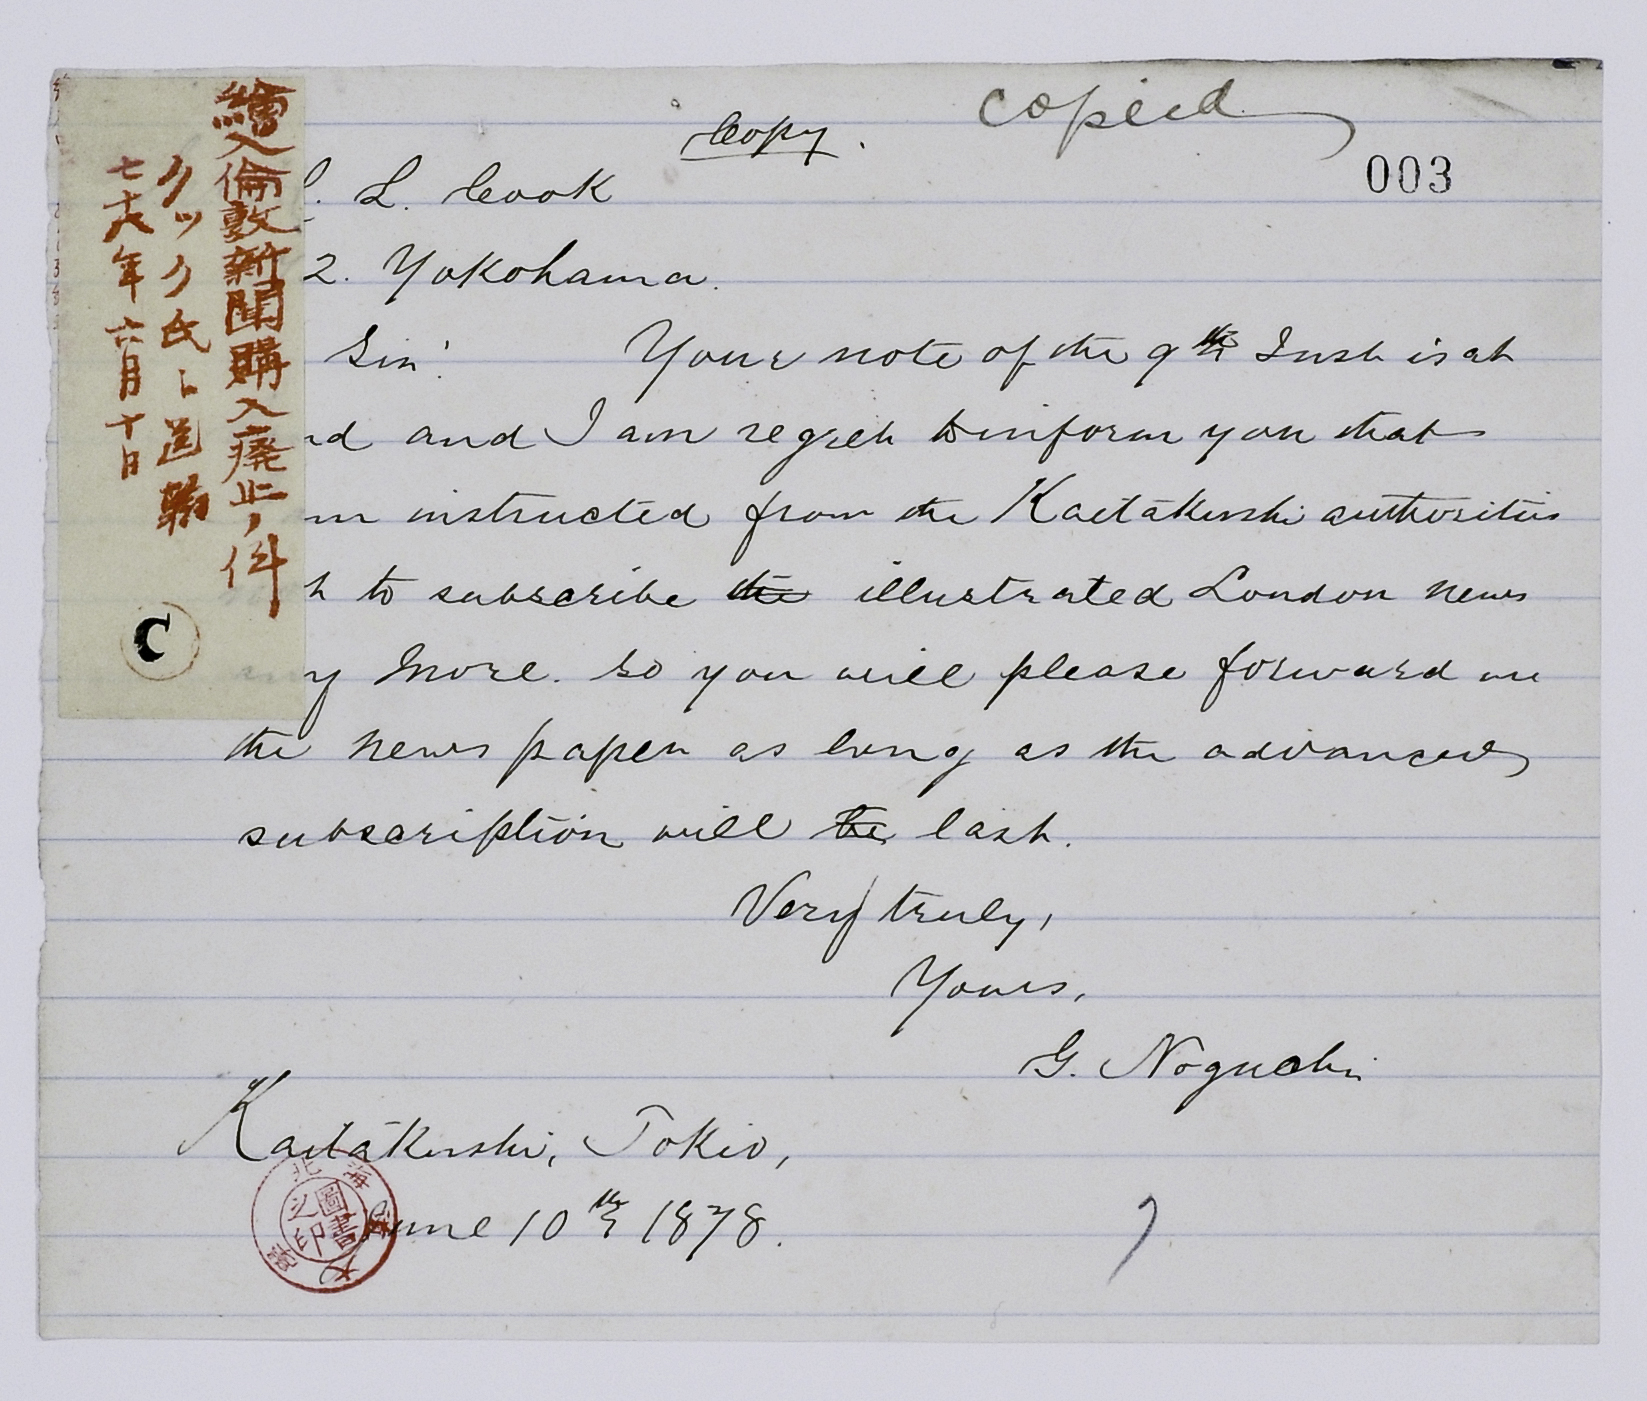 繪入倫敦新聞購入廃止ノ件
クック氏ヘ送翰
七十八年六月十日
C
Copy.
copied
003
. L. Cook
2. Yokohama.
Sir! Your note of the 9th Inst is at
nd and I am regret to inform you that
m instructed from the Kaitakushi authorities
to subscribe the illustrated London news
ny more. So you will please forward me
the news paper as long as the advanced
subscription will be last.
Very truly,
Yours,
G. Noguchi
Kaitakushi, Tokio,
June 10th 1878.
圖書之印